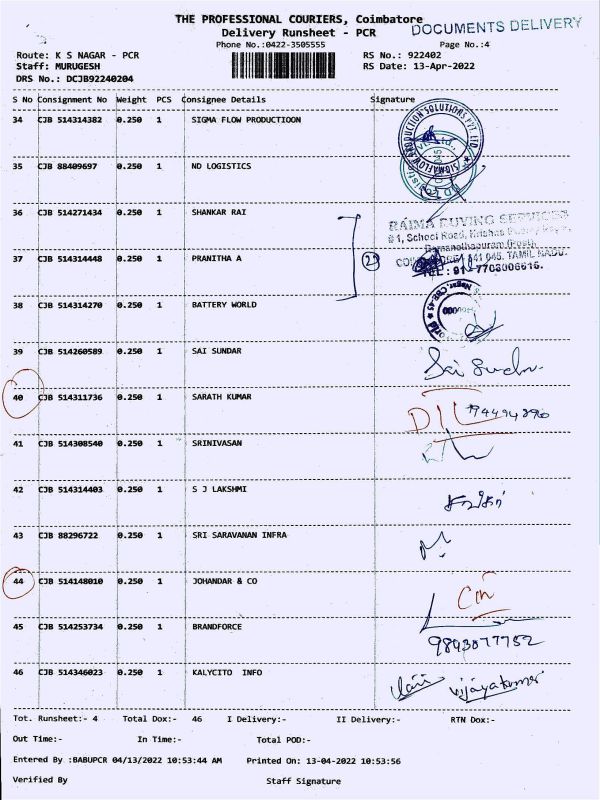 THE PROFESSIONAL COURIERS, Coimbatore
DOCUMENTS DELIVERY
Delivery Runsheet - PCR
Phone No.:0422-3505555
Page No.:4
Route: K S NAGAR - PCR
RS No.: 922402
Staff: MURUGESH
RS Date: 13-Apr-2022
DRS No.: DCJB92240204
S No Consignment No Weight PCS Consignee Details Signature
34 CJB 514314382 0.250 1 SIGMA FLOW PRODUCTIOON
PRODUCTION SOLUTIONS PVT. LTD. SIGMAFLOW
35 CJB 88409697 0.250 1 ND LOGISTICS
36 CJB 514271434 0.250 1 SHANKAR RAI
RAIMA BUYING SERVICES
# 1, School Road, Krishna
Ramanathapuram (Post)
37 CJB 514314448 0.250 1 PRANITHA A
641 045. TAMIL NADU.
TEL : 91 - 7708006616.
38 CJB 514314270 0.250 1 BATTERY WORLD
39 CJB 514260589 0.250 1 SAI SUNDAR
Sai Sundar
40 CJB 514311736 0.250 1 SARATH KUMAR
D/L
41 CJB 514308540 0.250 1 SRINIVASAN
42 CJB 514314403 0.250 1 S J LAKSHMI
43 CJB 88296722 0.250 1 SRI SARAVANAN INFRA
44 CJB 514148010 0.250 1 JOHANDAR & CO
45 CJB 514253734 0.250 1 BRANDFORCE
9843077752
46 CJB 514346023 0.250 1 KALYCITO INFO
vijayakumar
Tot. Runsheet:- 4 Total Dox:- 46 I Delivery:- II Delivery:- RTN Dox:-
Out Time:- In Time:- Total POD:-
Entered By :BABUPCR 04/13/2022 10:53:44 AM Printed On: 13-04-2022 10:53:56
Verified By Staff Signature